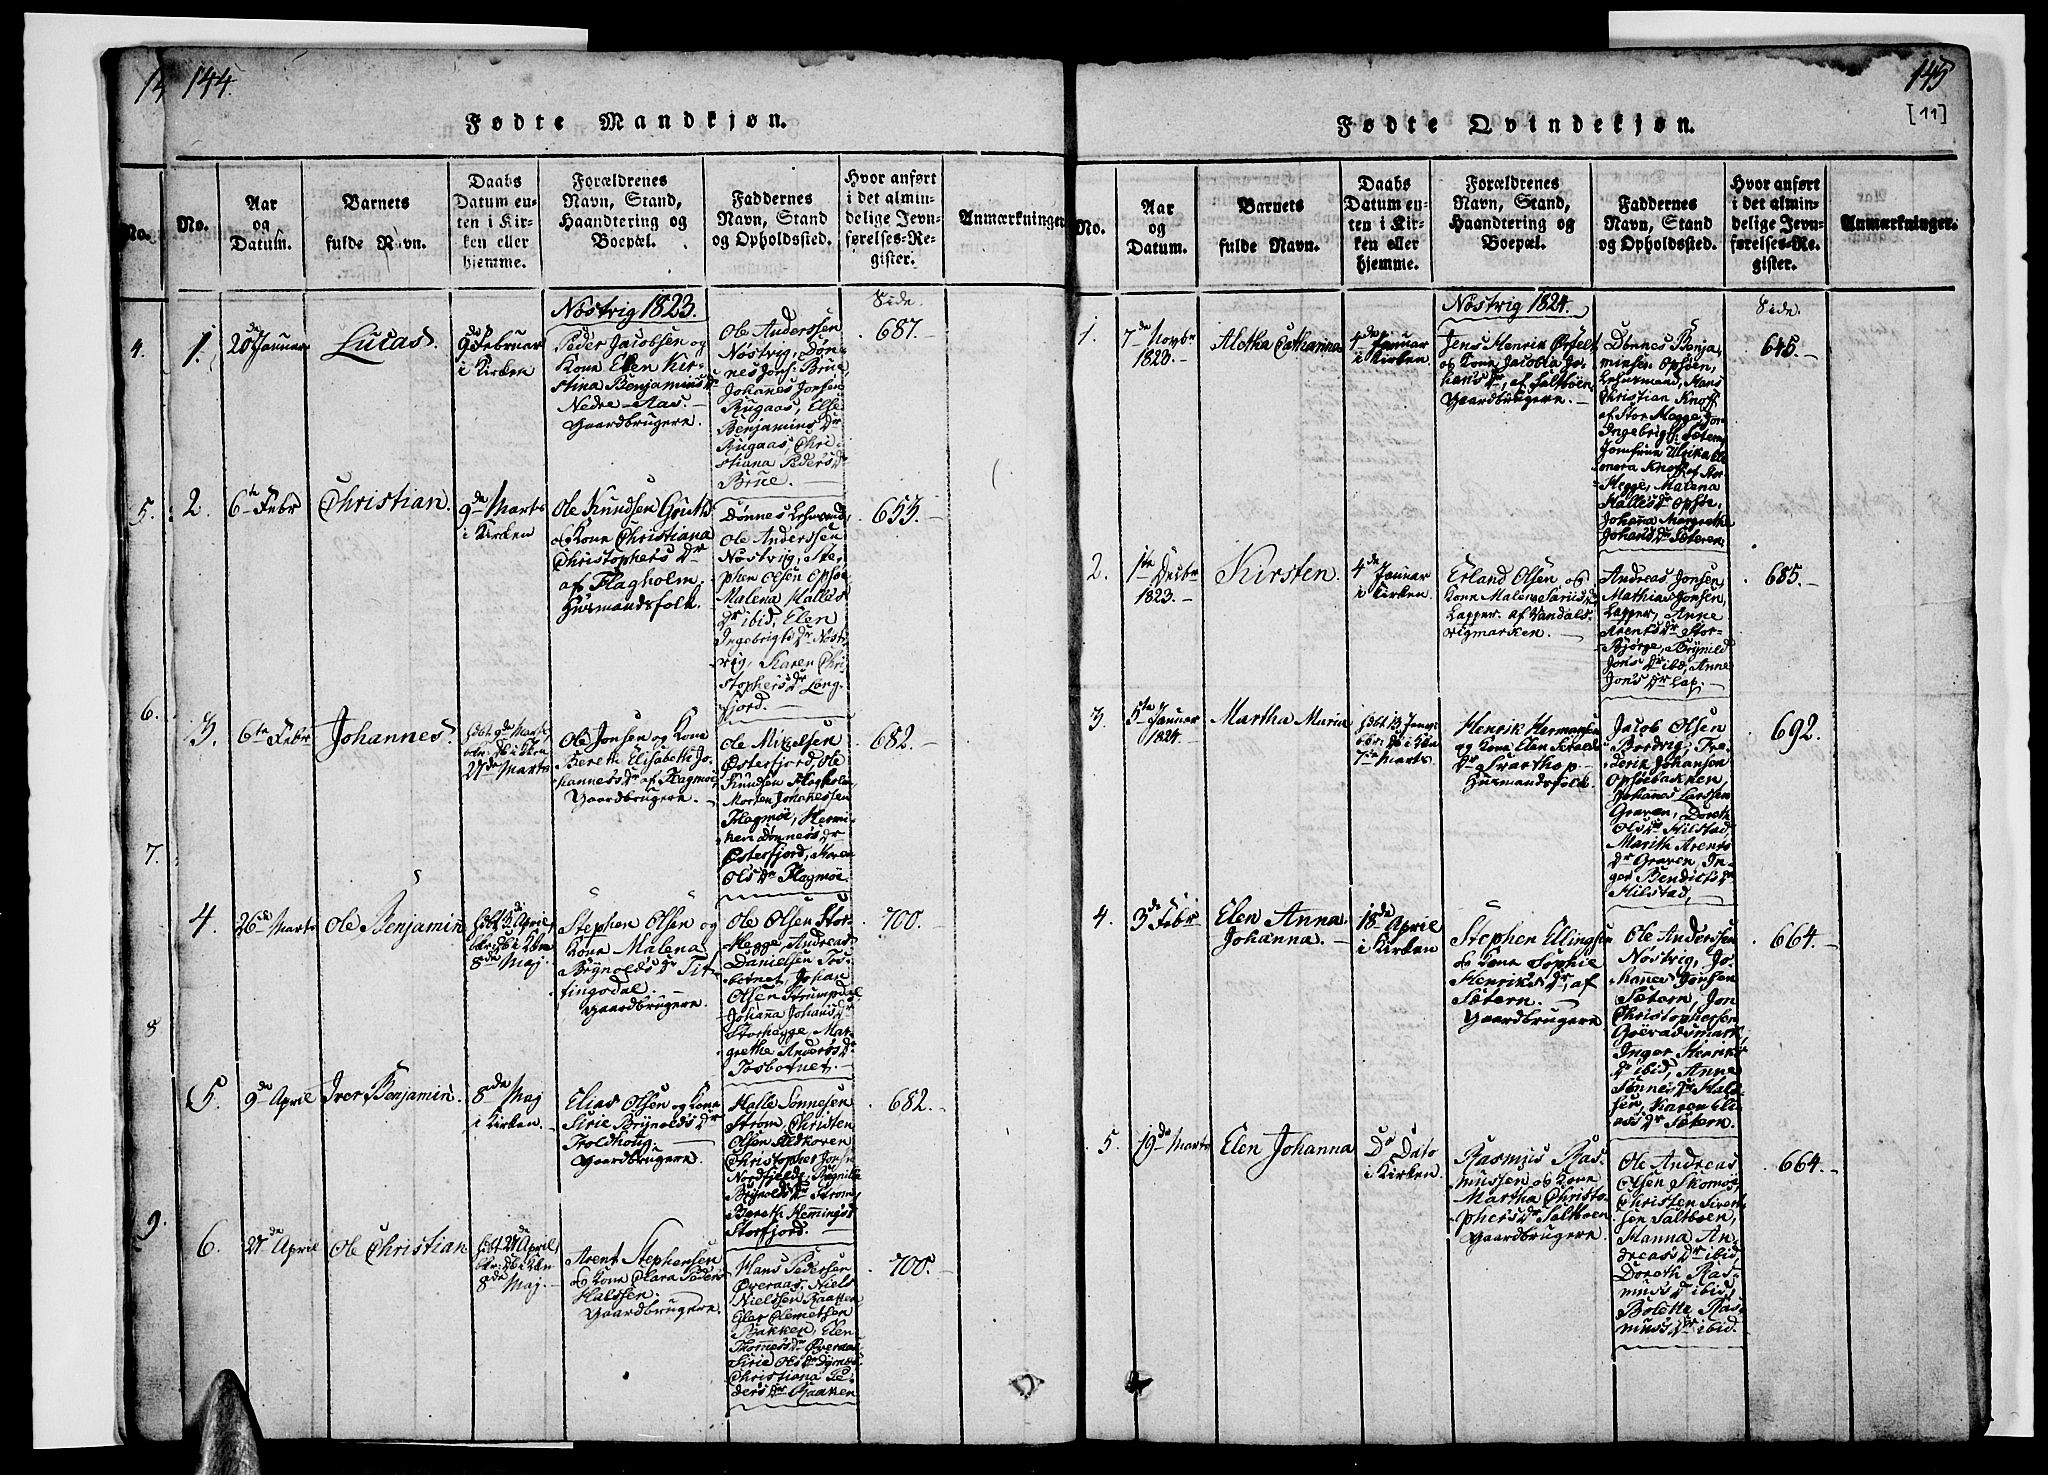 144.
Fødte Mandkjøn.
No.
Aar
og
Datum.
Barnets
fulde Navn.
Daabs
Datum en-
ten i Kir-
ken eller
hjemme.
Forældrenes
Navn, Stand,
Haandtering og
Boepæl.
Faddernes
Navn, Stand
og Opholdssted.
Hvor anført
i det almin-
delige Jevn-
førelses-Re-
gister.
Anmærkninger
Nöstvig 1823.
Side.
1.
20de Januar
Lucas.
9de Februar
i Kirken
Peder Jacobsen og
Kone Elen Kir-
stina Benjamins Dr
Nedre-Aas.
Gaardbrugere.
Ole Anderssen
Nöstvig, Døn-
nes Jons: Brue,
Johannes Jonsen
Rugaas, Else
Benjamins Dr
Rugaas, Chri-
stiana Peders Dr
Brue.
687.
2.
6te Febr
Christian.
9de Marts
i Kirken
Ole Knudsen Gruth
og Kone Christiana
Christophers Dr
af Flagholm.
Huusmandsfolk.
Dønnes Lehnsmd,
Ole Anderssen
Nöstvig, Ste-
phen Olsen Opsöe
Malena Halles
Dr ibid, Elen
Ingebrigts Dr Nöst-
vig, Karen Chri-
stophers Dr Lang-
fjord.
653.
3.
6te Febr
Johannes.
27de Marts
Ole Jonsen og Kone
Bereth Elisabeth Jo-
hannes Dr af Flagmöe
Gaardbrugere.
Ole Mikelsen
Østerfjord, Ole
Knudsen Flagholm
Morten Johanessen
Flagmöe, Hermi-
ken Dønnes Dr
Østerfjord, Maren
Ols Dr Flagmöe.
682.
4.
26de Marts
Ole Benjamin
8de Maj.
Stephen Olsen og
Kone Malena
Brÿnolds Dr Tit-
tingsdal.
Gaardbrugere.
Ole Olsen Stor-
Hegge, Andreas
Danielsen Tos-
botnet, Johan
Olsen Strumpdal
Johanna Johans Dr
Storhegge, Mar-
grethe Anders Dr
Tosbotnet.
700.
5.
9de April
Iver Benjamin.
8de Maj
i Kirken.
Elias Olsen og Kone
Sirie Brÿnolds Dr
Troldhoug.
Gaardbrugere.
Halle Sönnesen
Ström, Christen
Olsen Aldkoven
Christopher Jonsen
Nordfjeld, Pernille
Brÿnolds Dr Ström
Bereth Hemmings Dr
Storfjord.
682.
6.
27de April
Ole Christian
8de Maj.
Arent Stephensen
og Kone Clara Peders
Halssen.
Gaardbrugere.
Hans Pedersen
Øveraas, Niels
Nielssen Baakken
Eler Clemetsen
Bakken, Elen
Thomes Dr Øveraas
Sirie Ols Dr Dÿrnæs
Christiana Pe-
ders Dr Baaken
700.
145
[11]
Fødte Qvindekjøn.
No.
Aar
og
Datum.
Barnets
fulde Navn.
Daabs
Datum en-
ten i Kir-
ken eller
hjemme.
Forældrenes
Navn, Stand,
Haandtering og
Boepæl.
Faddernes
Navn, Stand
og Opholdssted.
Hvor anført
i det almin-
delige Jevn-
førelses-Re-
gister.
Anmærkninger.
Nöstvig 1824.
Side.
1.
7de Novbr
1823.
Aletha Catharina
4de Januar
i Kirken
Jens Henrik Ørfelt
og Kone Jacobia Jo-
hans Dr, af Saltböen
Gaardbrugere.
Dönnes Benja-
minsen Opsöen,
Lehnsmand, Hans
Christian Knoff
af Stor Hegge, Jon
Ingebrigts: Setern
Jomfrue Ulrika Ele-
onora Knoff af Stor
Hegge, Malena
Halles Dr Opsöe,
Johanna Margrethe
Johans Dr Seteren.
645.
2.
1te Decbr
1823.
Kirsten.
4de Januar
i Kirken.
Erland Olsen og
Kone Malene Sariis Dr
Lapper. af Vandals-
vigmarken.
Andreas Jonsen,
Mathias Jonsen,
Lapper, Anne
Arents Dr Stor-
Bjørge, Brynild
Jons Dr ibd, Anne
Jons Dr Lap.
685.
3.
5te Januar
1824.
Martha Maria
7de Marts
Henrik Hermansen
og Kone Elen Seralds
Dr Svarthop
Huusmandsfolk.
Jacob Olsen
Bordvig, Fre-
derik Johansen
Opsöebakken,
Johannes Larssen
Graven, Doreth
Ols Dr Hilstad,
Marith Arents
Dr Graven, In-
ger Bendicts Dr
Hilstad,
692.
4.
3de Febr
Elen Anna
Johanna.
18de April
i Kirken
Stephen Ellingsen
og Kone Sophie
Henriks Dr, af
Sætern.
Gaardbrugere
Ole Anderssen
Nöstvig, Jo-
hannes Jonsen
Sætern, Jon
Christophersen
Gåeradsmark,
Inger Henriks
Dr ibid, Anne
Sønnes Dr Hals-
sen, Karen Eli-
as Dr Sætern.
664.
5.
19de Marts
Elen Johanna
Do Dato
i Kirken.
Rasmus Ras-
mussen og Kone
Martha Christo-
phers Dr Saltböen
Gaardbrugere.
Ole Andreas
Olsen Skomoe,
Christen Siver-
sen Saltböen,
Hanna An-
dreas Dr ibid
Doroth Ras-
mus Dr ibid,
Bolette Ras-
mus Dr ibid.
664.